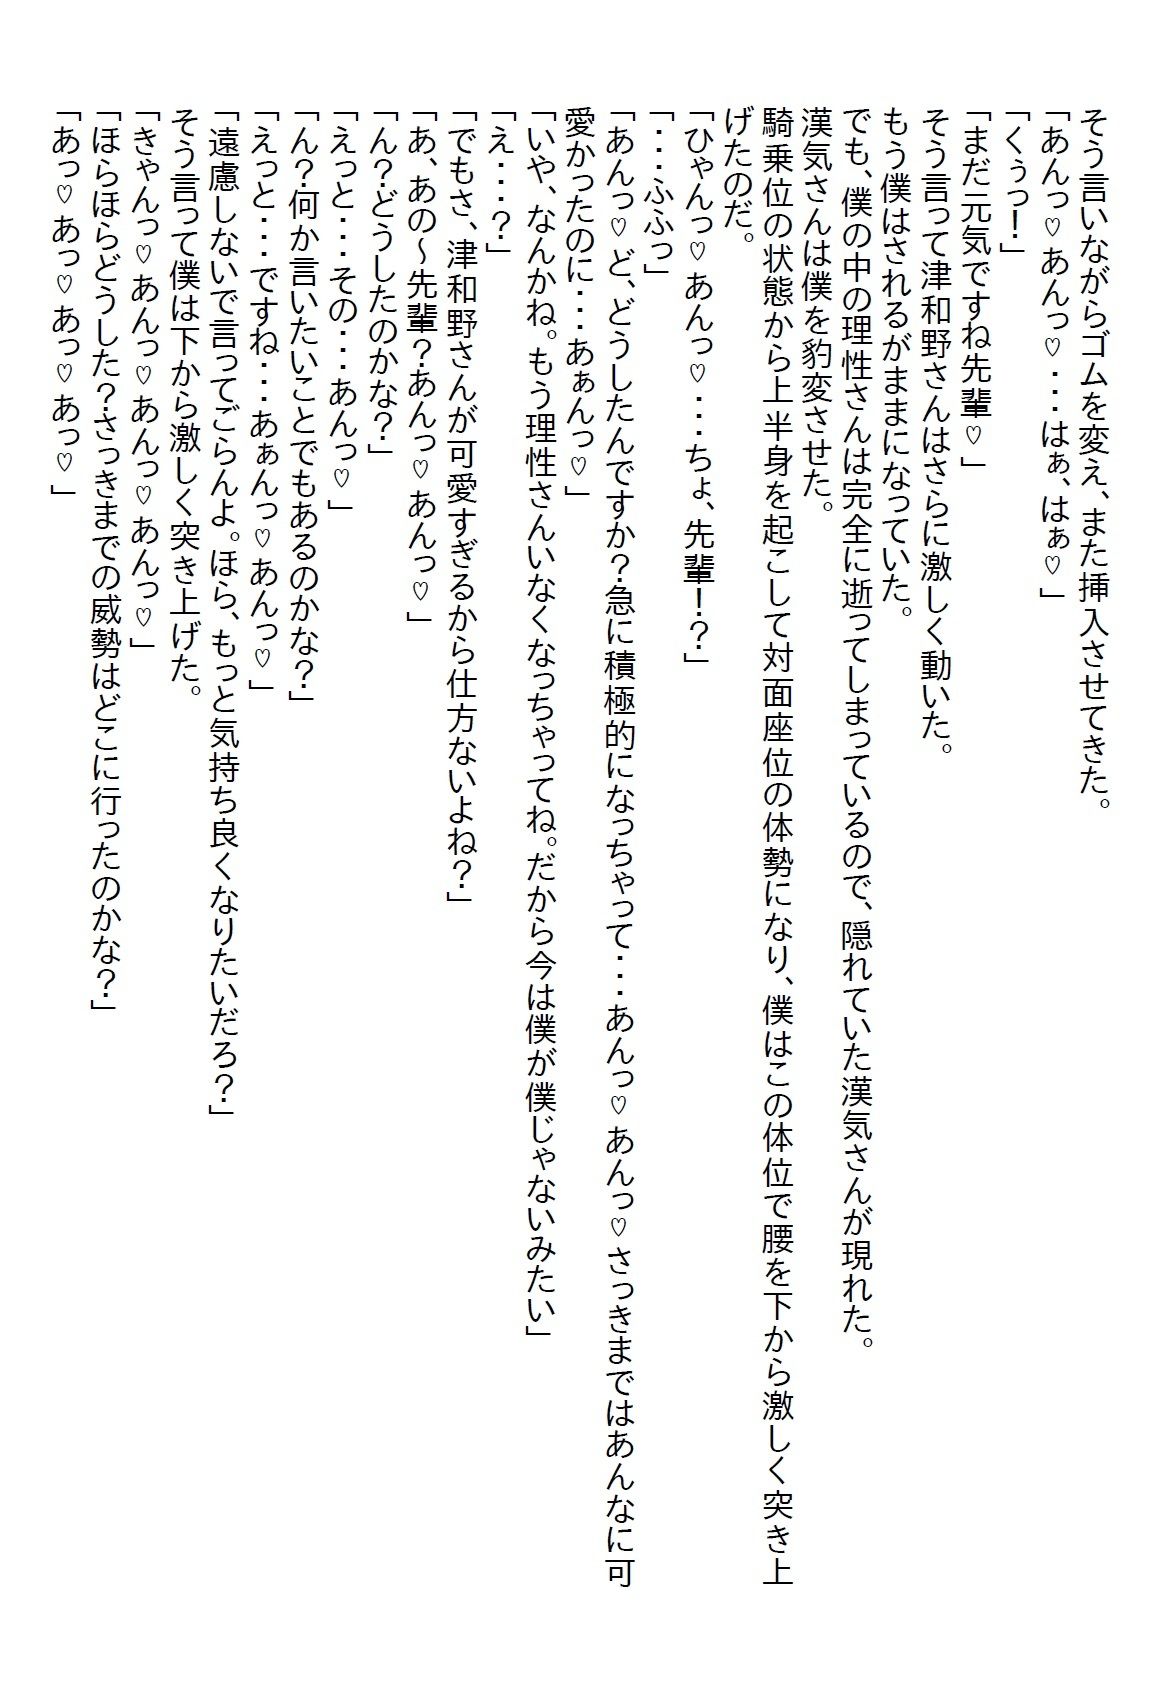 そう言いながらゴムを変え、また挿入させてきた。
「あんっ♡あんっ♡・・・はぁ、はぁ♡」
「くぅっ！」
「まだ元気ですね先輩♡」
そう言って津和野さんはさらに激しく動いた。
もう僕はされるがままになっていた。
でも、僕の中の理性さんは完全に逝ってしまっているので、隠れていた漢気さんが現れた。
漢気さんは僕を豹変させた。
騎乗位の状態から上半身を起こして対面座位の体勢になり、僕はこの体位で腰を下から激しく突き上
げたのだ。
「ひゃんっ♡あんっ♡・・・ちょ、先輩！？」
「・・・ふふっ」
「あんっ♡ど、どうしたんですか？急に積極的になっちゃって・・・あんっ♡あんっ♡さっきまではあんなに可
愛かったのに・・・あぁんっ♡」
「いや、なんかね。もう理性さんいなくなっちゃってね。だから今は僕が僕じゃないみたい」
「え・・・？」
「でもさ、津和野さんが可愛すぎるから仕方ないよね？」
「あ、あの～先輩？あんっ♡あんっ♡」
「ん？どうしたのかな？」
「えっと・・・その・・・あんっ♡」
「ん？何か言いたいことでもあるのかな？」
「えっと・・・ですね・・・あぁんっ♡あんっ♡」
「遠慮しないで言ってごらんよ。ほら、もっと気持ち良くなりたいだろ？」
そう言って僕は下から激しく突き上げた。
「きゃんっ♡あんっ♡あんっ♡あんっ♡」
「ほらほらどうした？さっきまでの威勢はどこに行ったのかな？」
「あっ♡あっ♡あっ♡あっ♡」